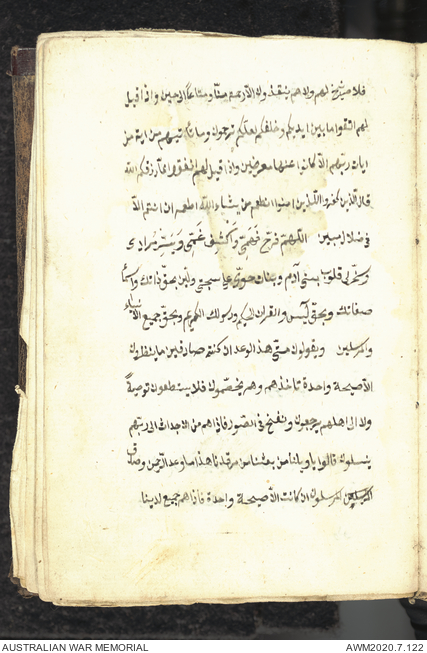 فلا صريخ لهم ولا هم ينقذون الا رحمة منا ومتاعا الى حين واذا قيل
لهم اتقوا ما بين ايديكم وما خلفكم لعلكم ترحمون وما تأتيهم من اية من
ايات ربهم الا كانوا عنها معرضين واذا قيل لهم انفقوا مما رزقكم الله
قال الذين كفروا للذين امنوا انطعم من لو يشاء الله اطعمه ان انتم الا
في ضلال مبين اللهم فرج همي واكشف غمي ويسر مرادي
وسخر لي قلوب بني آدم وبنات حوى بحق ذاتك واسماء
صفاتك وبحق يس والقران الحكيم ورسولك الكريم وبحق جميع الانبياء
والمرسلين ويقولون متى هذا الوعد ان كنتم صادقين ما ينظرون
الا صيحة واحدة تاخذهم وهم يخصمون فلا يستطعون توصية
ولا الى اهلهم يرجعون ونفخ في الصور فاذا هم من الاجداث الى ربهم
ينسلون قالوا يا ويلنا من بعثنا من مرقدنا هذا ما وعد الرحمن وصدق
المرسلون ان كانت الا صيحة واحدة فاذا هم جميع لدينا
AUSTRALIAN WAR MEMORIAL
AWM2020.7.122